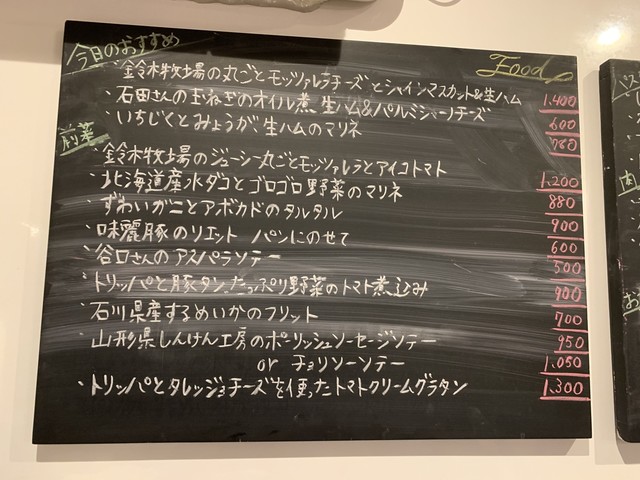 今日のおすすめ
Food
・鈴木牧場の丸ごとモッツァレラチーズとシャインマスカット&生ハム 1,400
・石田さんの玉ねぎのオイル煮 生ハム&パルミジャーノチーズ 600
・いちじくとみょうが、生ハムのマリネ 780
前菜
・鈴木牧場のジューシー丸ごとモッツァレラとアイコトマト 1,200
・北海道産水ダコとゴロゴロ野菜のマリネ 880
・ずわいガニとアボカドのタルタル 900
・味麗豚のリエット パンにのせて 600
・谷口さんのアスパラソテー 500
・トリッパと豚タン、たっぷり野菜のトマト煮込み 900
・石川県産するめいかのフリット 700
・山形県しんけん工房のポーリッシュソーセージソテー 950
or チョリソーソテー 1,050
・トリッパとタレッジョチーズを使ったトマトクリームグラタン 1,300